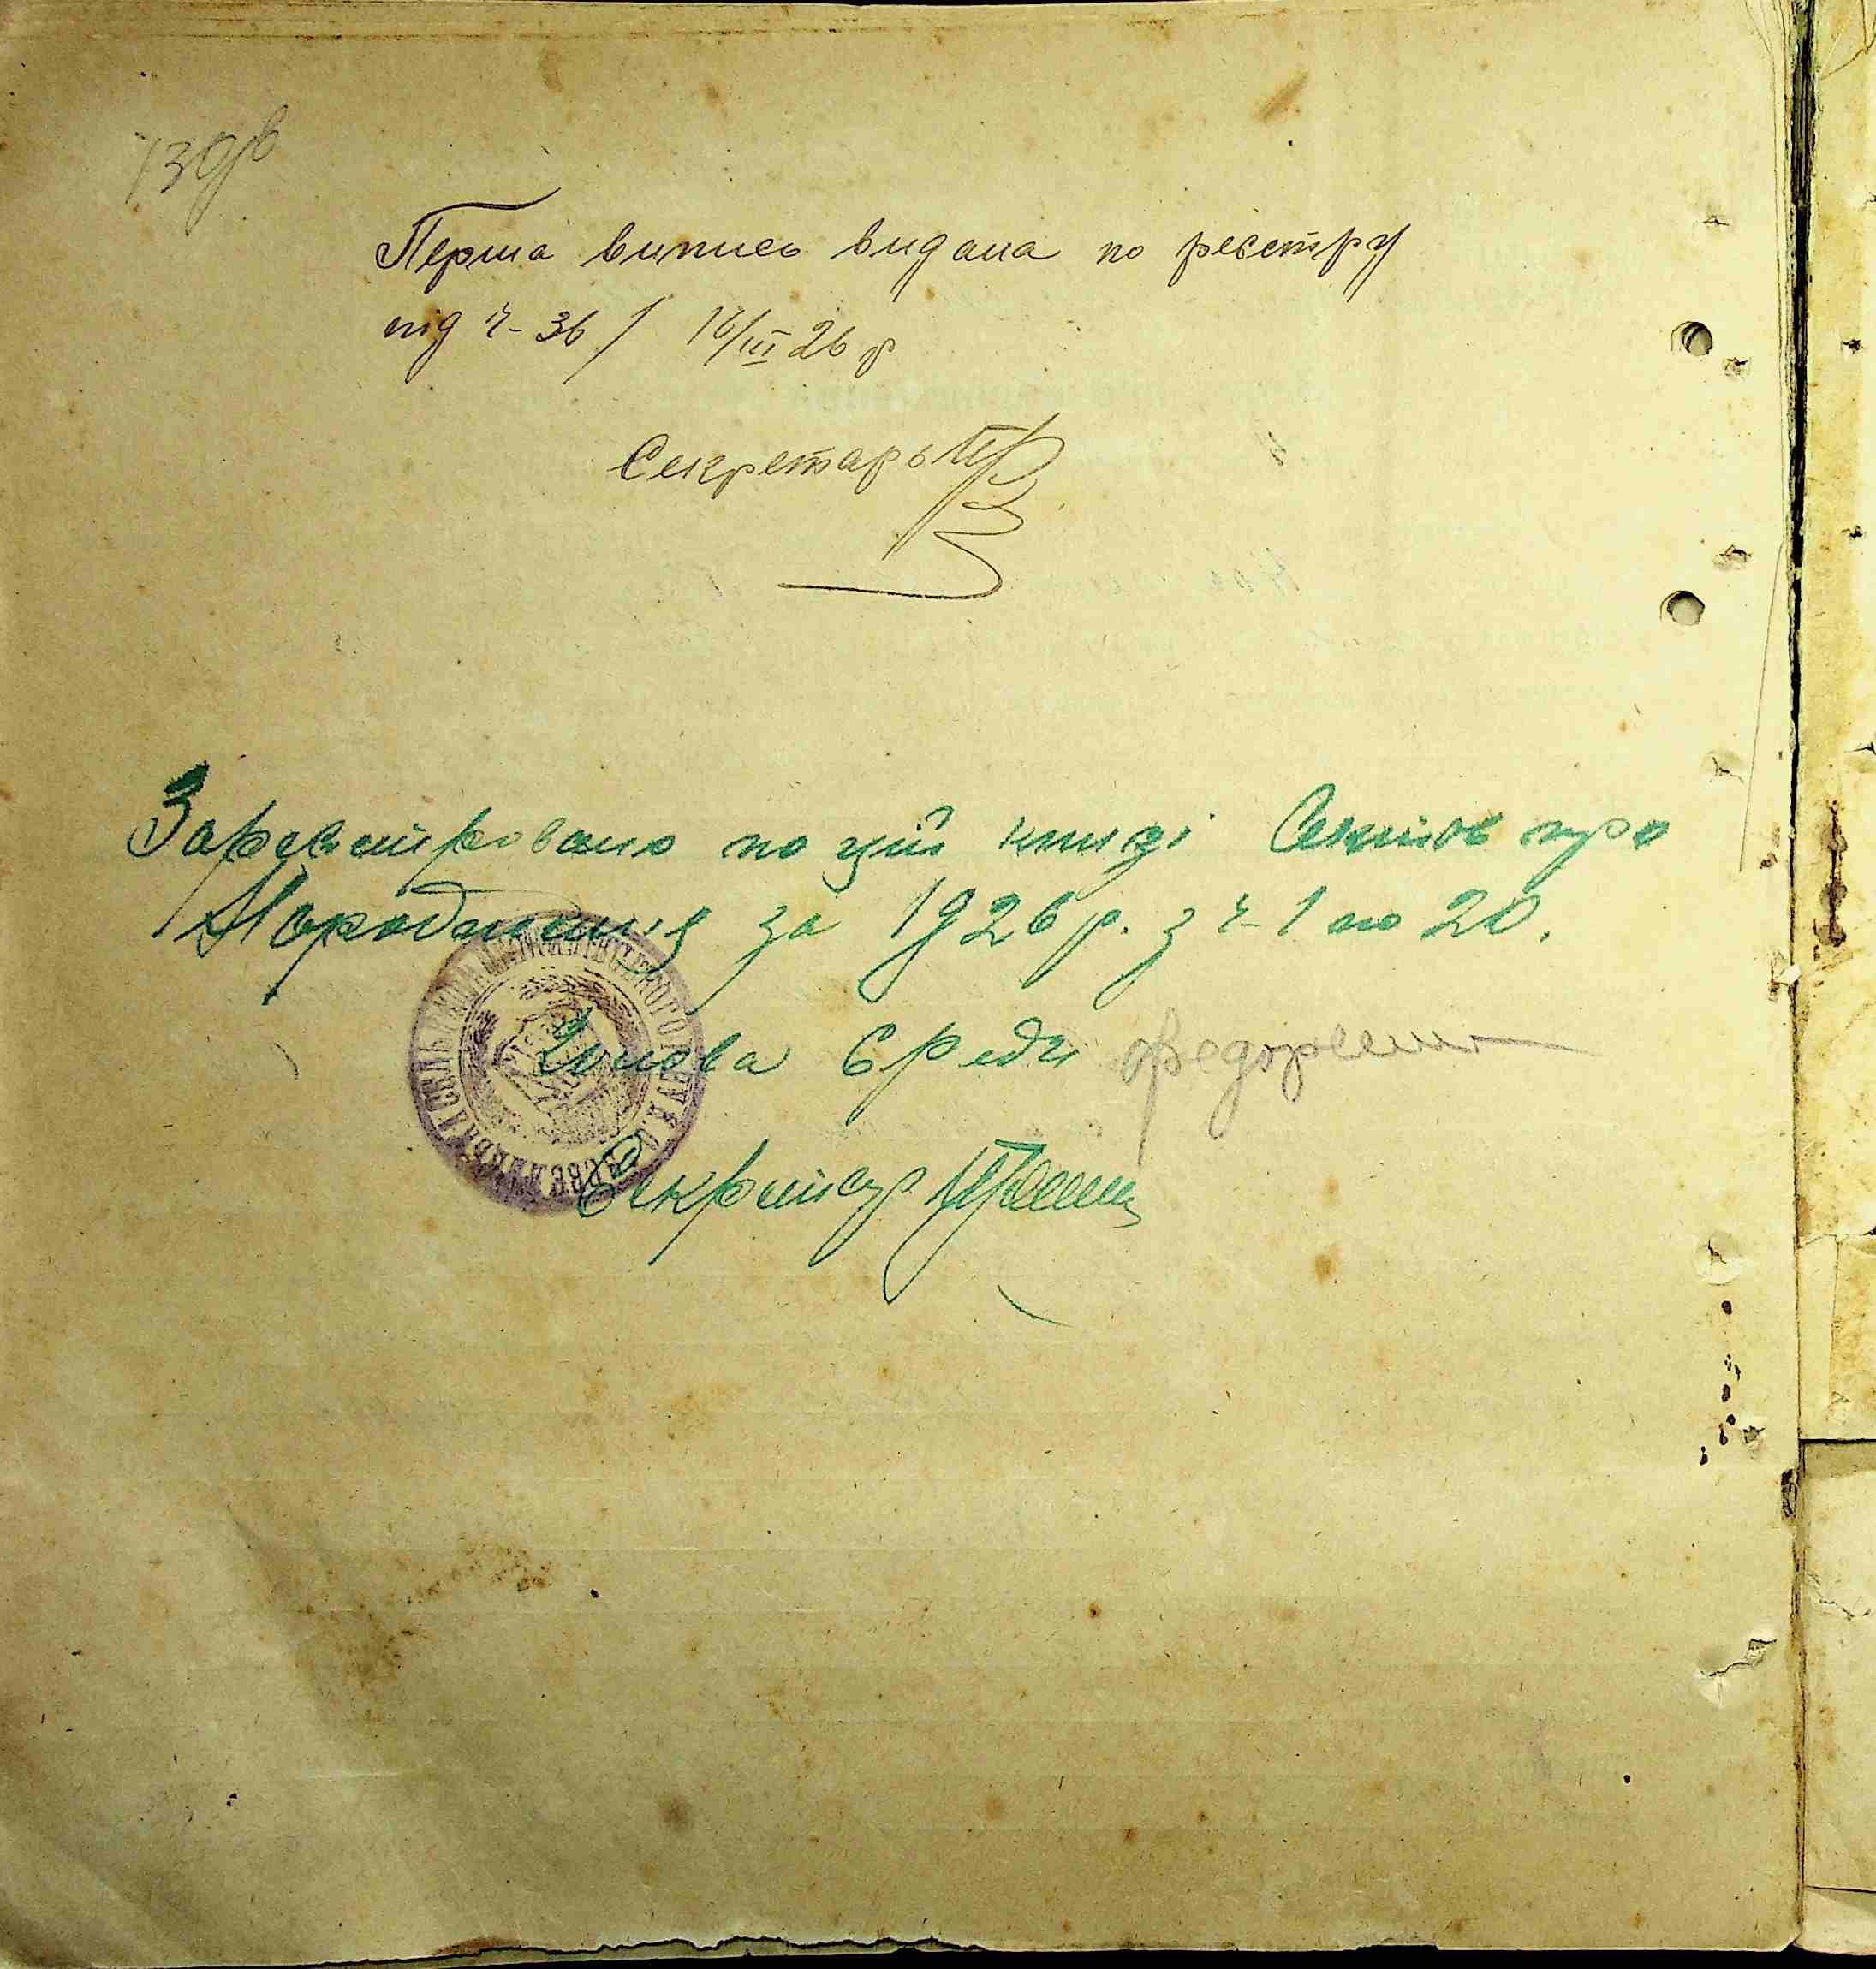 Перша випись видана по реєстру
під ч- 36 / 16/III 26 р
Секретарь
Зареєстровано по цій книзі Актів про
Народження за 1926 р. з ч- 1 по 20.
Голова С/Ради Федоренко
Секретар